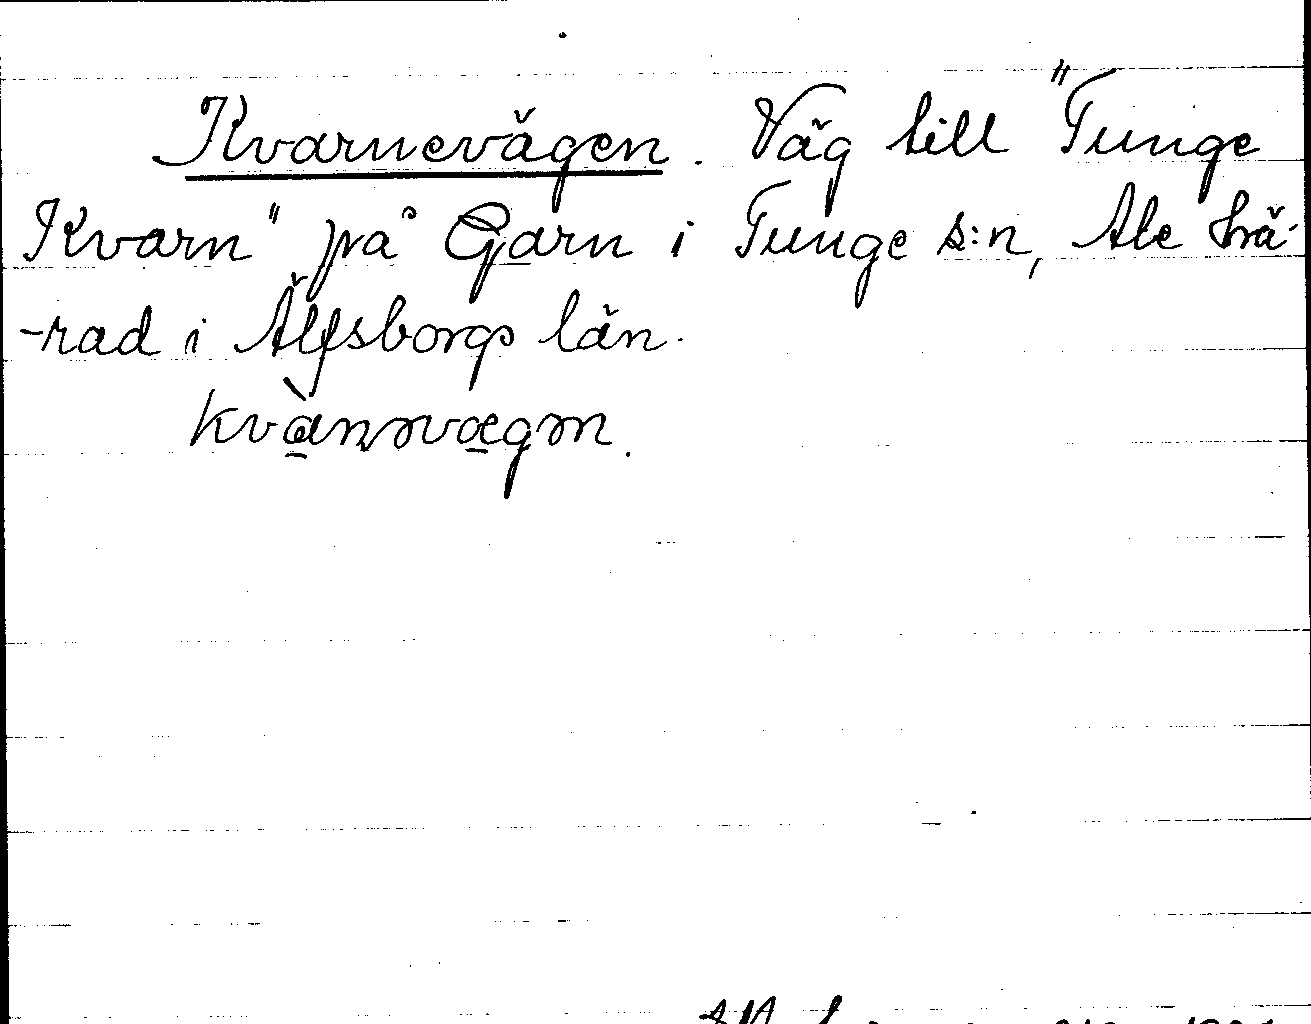 Kvarnevägen. Väg till "Tunge
Kvarn" på Garn i Tunge s:n, Ale hä-
-rad i Älfsborgs län.